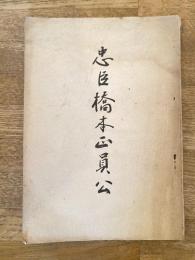 忠臣橋本正員公